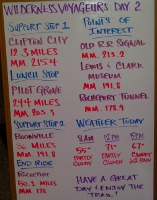 WILDERNESS VOYAGEURS DAY 2
SUPPORT STOP 1
CLIFTON CITY
12.3 MILES
MM 215.4
LUNCH STOP
PILOT GROVE
24.4 MILES
MM 203.3
SUPPORT STOP 2
BOONVILLE
36 MILES
MM 191.8
END RIDE
ROCHEPORT
50.2 MILES
MM 178
POINTS OF INTEREST
OLD RR SIGNAL
MM. 215.2
LEWIS & CLARK
MUSEUM
MM 191.8
ROCHEPORT TUNNEL
MM 178.9
WEATHER TODAY
8AM 12PM 5PM
55° 71° 67°
PARTLY CLOUDY
PARTLY CLOUDY
HAVE A GREAT
DAY & ENJOY THE
TRAIL!